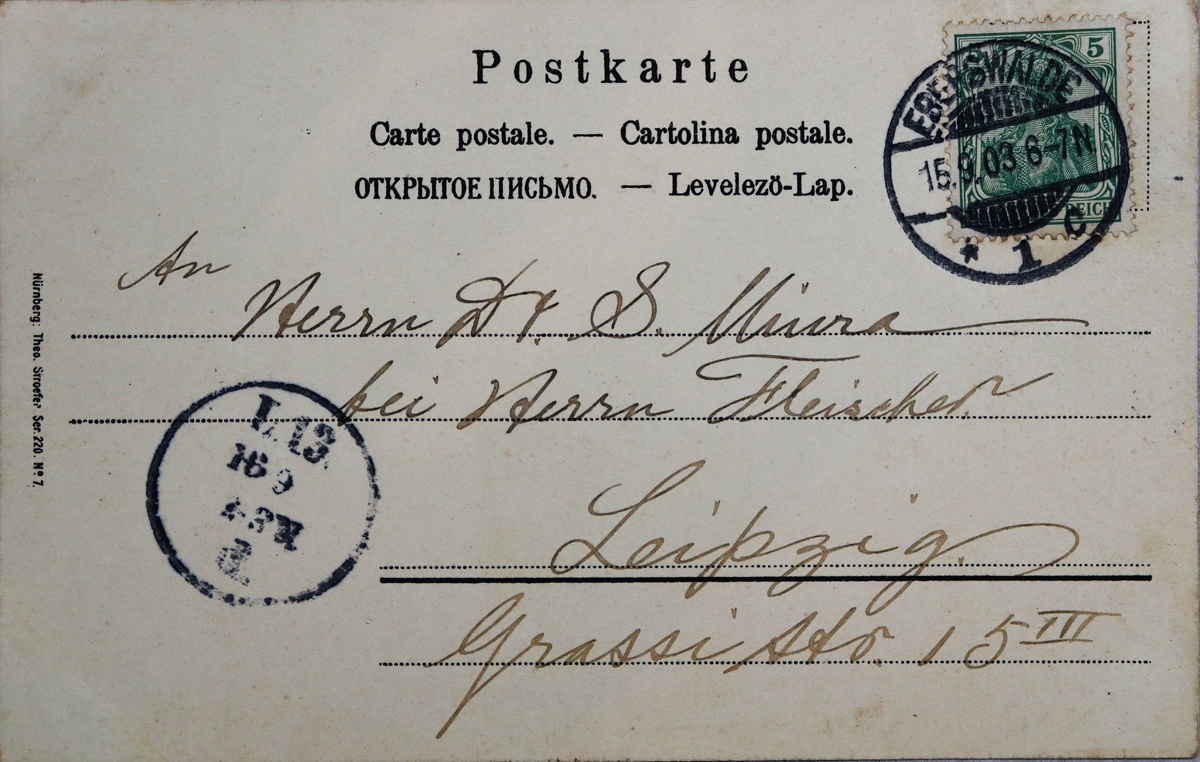 Postkarte
Carte postale. — Cartolina postale.
ОТКРЫТОЕ ПИСЬМО. — Levelező-Lap.
5
REICH
EBERSWALDE
15.9.03 6-7N
* 1 c
An
Herrn Dr. S. Miura
bei Herrn Fleischer
Leipzig.
Grassi str. 15 III
L. 13.
16 9
d
Nürnberg: Theo. Stroefer Ser. 220. Nº 7.